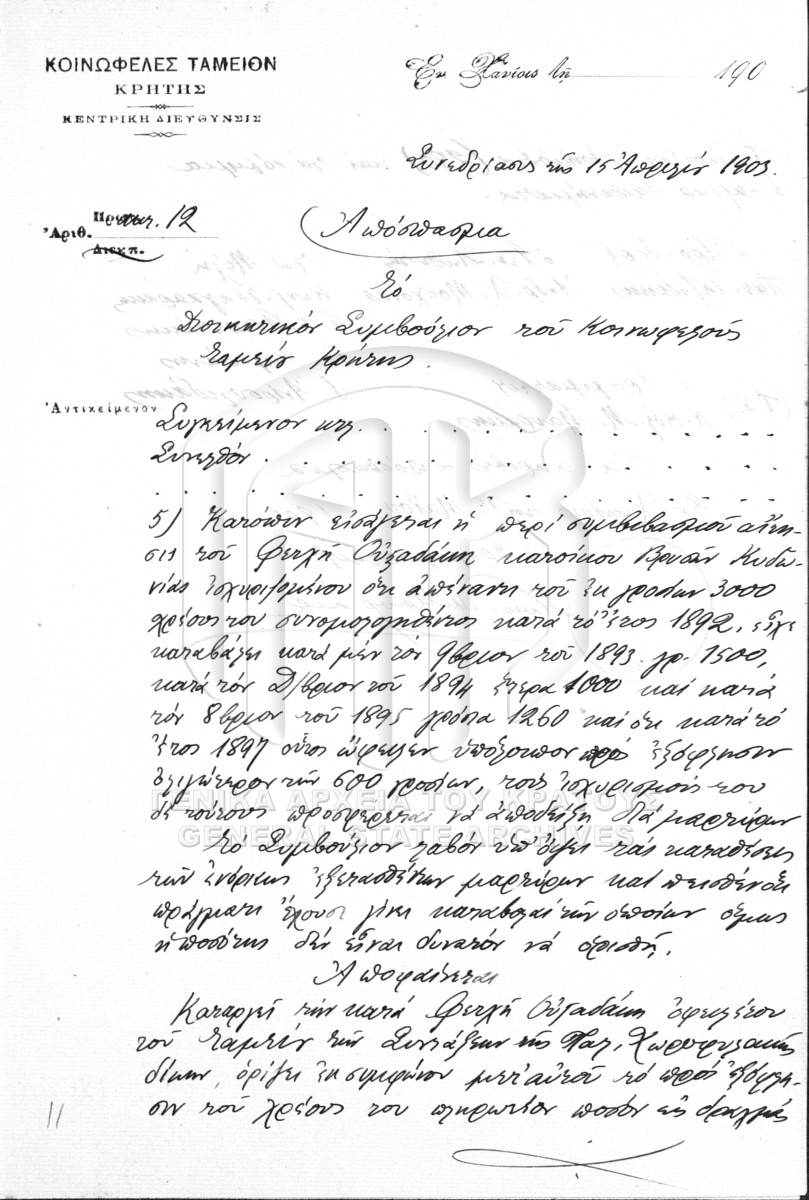 ΚΟΙΝΩΦΕΛΕΣ ΤΑΜΕΙΟΝ
ΚΡΗΤΗΣ
ΚΕΝΤΡΙΚΗ ΔΙΕΥΘΥΝΣΙΣ
Ἐν Χανίοις τῇ 190
Συνεδρίασις τῆς 15 Ἀπριλίου 1903.
Ἀριθ. Πρωτ. 12
Διεκπ.
Ἀπόσπασμα
Τὸ
Διοικητικὸν Συμβούλιον τοῦ Κοινωφελοῦς
Ταμείου Κρήτης.
Ἀντικείμενον
Συγκείμενον κτλ.
Συνελθὸν
5) Κατόπιν εἰσάγεται ἡ περὶ συμβιβασμοῦ αἴτη-
σις τοῦ Φετχῆ Οὐζαδάκη κατοίκου Βρυσῶν Κυδω-
νίας ἰσχυριζομένου ὅτι ἀπέναντι τοῦ ἐκ γροσίων 3000
χρέους του συνομολογηθέντος κατὰ τὸ ἔτος 1892, εἶχε
καταβάλει κατὰ μὲν τὸν 9βριον τοῦ 1893 γρ. 1500,
κατὰ τὸν Δ/βριον τοῦ 1894 ἕτερα 1000 καὶ κατὰ
τὸν 8βριον τοῦ 1895 γρόσια 1260 καὶ ὅτι κατὰ τὸ
ἔτος 1897 οὗτος ὤφειλεν ὑπόλοιπον πρὸς ἐξόφλησιν
ὀλιγώτερον τῶν 600 γροσίων, τοὺς ἰσχυρισμούς του
δὲ τούτους προσφέρεται νὰ ἀποδείξῃ διὰ μαρτύρων
Τὸ Συμβούλιον λαβὸν ὑπ' ὄψει τὰς καταθέσεις
τῶν ἐνόρκως ἐξετασθέντων μαρτύρων καὶ πεισθὲν ὅτι
πράγματι ἔχουσι γίνει καταβολαὶ τῶν ὁποίων ὅμως
ἡ ποσότης δὲν εἶναι δυνατὸν νὰ ὁρισθῇ,
Ἀποφαίνεται
Καταργεῖ τὴν κατὰ Φετχῆ Οὐζαδάκη ὀφειλέτου
τοῦ Ταμείου τῶν Συντάξεων τῆς Παλ. Χωροφυλακῆς
δίκην, ὁρίζει ἐκ συμφώνου μετ' αὐτοῦ τὸ πρὸς ἐξόφλη-
σιν τοῦ χρέους του πληρωτέον ποσὸν εἰς δραχμὰς
11
ΓΕΝΙΚΑ ΑΡΧΕΙΑ ΤΟΥ ΚΡΑΤΟΥΣ
GENERAL STATE ARCHIVES